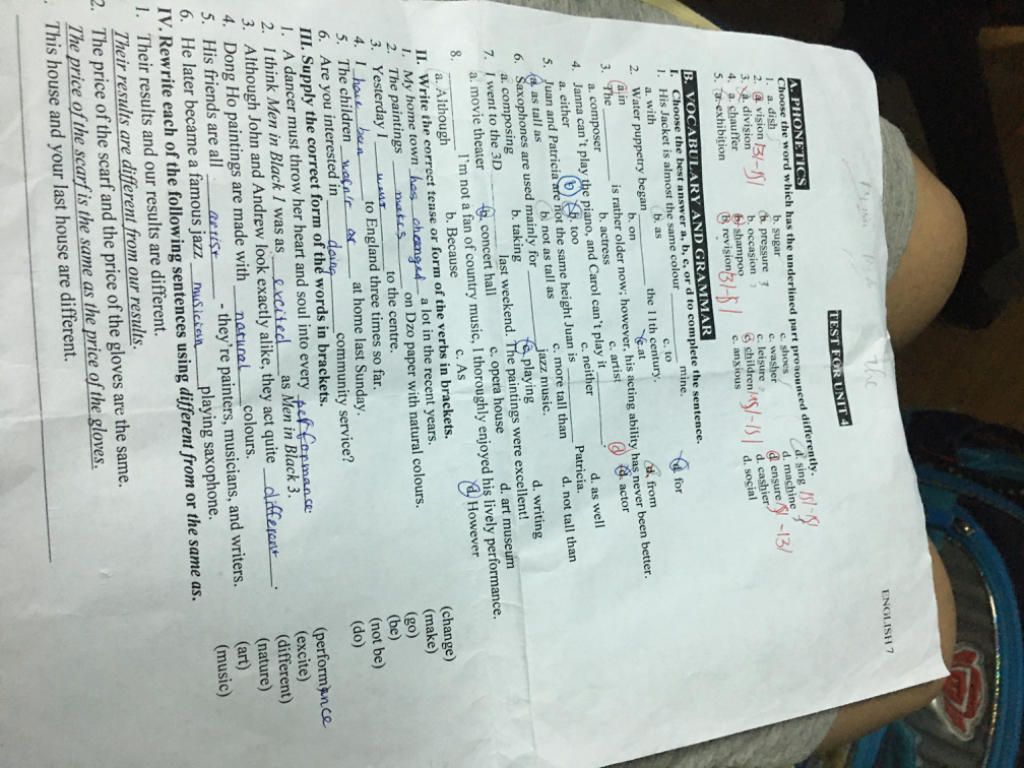 ENGLISH 7
TEST FOR UNIT 4
A. PHONETICS
Choose the word which has the underlined part pronounced differently.
1. a. dish b. sugar c. goes d. sing /s/-/ʃ/
2. a. vision /ʒ/-/ʃ/ b. pressure c. washer d. machine
3. a. division b. occasion c. leisure d. ensure /ʃ/-/ʒ/
4. a. chauffer b. shampoo c. children d. cashier
5. a. exhibition b. revision /ʒ/-/ʃ/ c. anxious d. social
B. VOCABULARY AND GRAMMAR
I. Choose the best answer a, b, c, or d to complete the sentence.
1. His Jacket is almost the same colour ______ mine.
a. with b. as c. to d. for
2. Water puppetry began ______ the 11th century.
a. in b. on c. at d. from
3. The ______ is rather older now; however, his acting ability has never been better.
a. composer b. actress c. artist d. actor
4. Janna can't play the piano, and Carol can't play it ______.
a. either b. too c. neither d. as well
5. Juan and Patricia are not the same height Juan is ______ Patricia.
a. as tall as b. not as tall as c. more tall than d. not tall than
6. Saxophones are used mainly for ______ jazz music.
a. composing b. taking c. playing d. writing
7. I went to the 3D ______ last weekend. The paintings were excellent!
a. movie theater b. concert hall c. opera house d. art museum
8. ______ I'm not a fan of country music, I thoroughly enjoyed his lively performance.
a. Although b. Because c. As d. However
II. Write the correct tense or form of the verbs in brackets.
1. My home town has changed a lot in the recent years. (change)
2. The paintings makes on Dzo paper with natural colours. (make)
3. Yesterday I went to the centre. (go)
4. I have been to England three times so far. (be)
5. The children at home last Sunday. (not be)
6. Are you interested in doing community service? (do)
III. Supply the correct form of the words in brackets.
1. A dancer must throw her heart and soul into every performance (performance
2. I think Men in Black I was as excited as Men in Black 3. (excite)
3. Although John and Andrew look exactly alike, they act quite different. (different)
4. Dong Ho paintings are made with natural colours. (nature)
5. His friends are all artist - they're painters, musicians, and writers. (art)
6. He later became a famous jazz musician playing saxophone. (music)
IV. Rewrite each of the following sentences using different from or the same as.
1. Their results and our results are different.
Their results are different from our results.
2. The price of the scarf and the price of the gloves are the same.
The price of the scarf is the same as the price of the gloves.
This house and your last house are different.